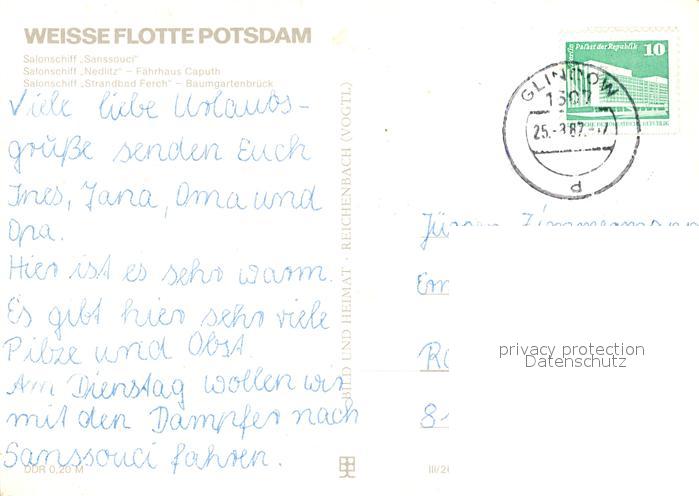 WEISSE FLOTTE POTSDAM
Salonschiff „Sanssouci"
Salonschiff „Nedlitz" – Fährhaus Caputh
Salonschiff „Strandbad Ferch" – Baumgartenbrück
Viele liebe Urlaubs-
grüße senden Euch
Ines, Jana, Oma und
Opa.
Hier ist es sehr warm.
Es gibt hier sehr viele
Pilze und Obst.
Am Dienstag wollen wir
mit den Dampfer nach
Sanssouci fahren.
DDR 0,20 M
BILD UND HEIMAT · REICHENBACH (VOGTL)
III/26
Berlin Palast der Republik 10
GLINDOW
1507
25.-8.87.-17
d
Jürgen Zimmermann
privacy protection
Datenschutz